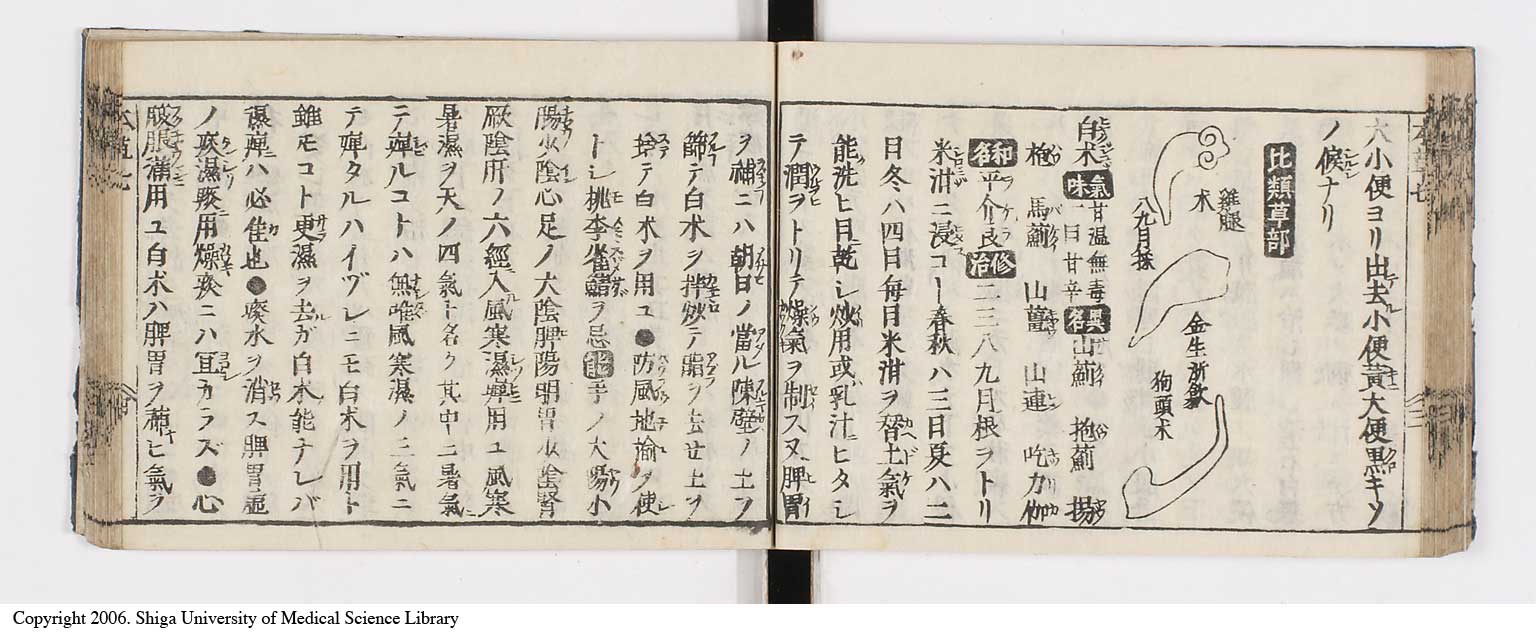 大小便ヨリ出去小便黄大便黒キソ
ノ候ナリ
比類草部
雞腿
朮
八九月採
金生浙歙
狗頭朮
白朮 氣味 甘温無毒 一曰甘辛 異名 山薊 抱薊 揚
枹 馬薊 山薑 山連 吃力伽
和名 ヲケラ 平介良 修治 二三八九月根ヲトリ
米泔ニ浸コー春秋ハ三日夏ハ二
日冬ハ四日毎日米泔ヲ替土氣ヲ
能洗ヒ日乾シ炒用或乳汁ニヒタシ
テ潤ヲトリテ燥氣ヲ制ス又脾胃
ヲ補ニハ朝日ノ當ル陳壁ノ土フ
篩テ白朮ヲ拌炒テ脂ヲ去セ土ヲ
捨テ白朮ヲ用ユ●防風地揄ヲ使
トシ桃李雀鮨ヲ忌 能 手ノ太陽小
陽少陰心足ノ太陰脾陽明胃少陰腎
厥陰肝ノ六經ニ入風寒濕痺用ユ風寒
暑濕ヲ天ノ四氣ト名ク其中ニ暑氣
テ痺ルコトハ無唯風寒濕ノ三氣ニ
テ痺タルハイヅレニモ白朮ヲ用ト
雖モコト更濕ヲ去ガ白朮能ナレバ
濕痺ハ必佳也●廃水ヲ消ス脾胃虚
ノ痰濕痰用燥痰ニハ宜カラズ●心
腹脹滿用ユ白朮ハ脾胃ヲ補ヒ氣ヲ
Copyright 2006. Shiga University of Medical Science Library